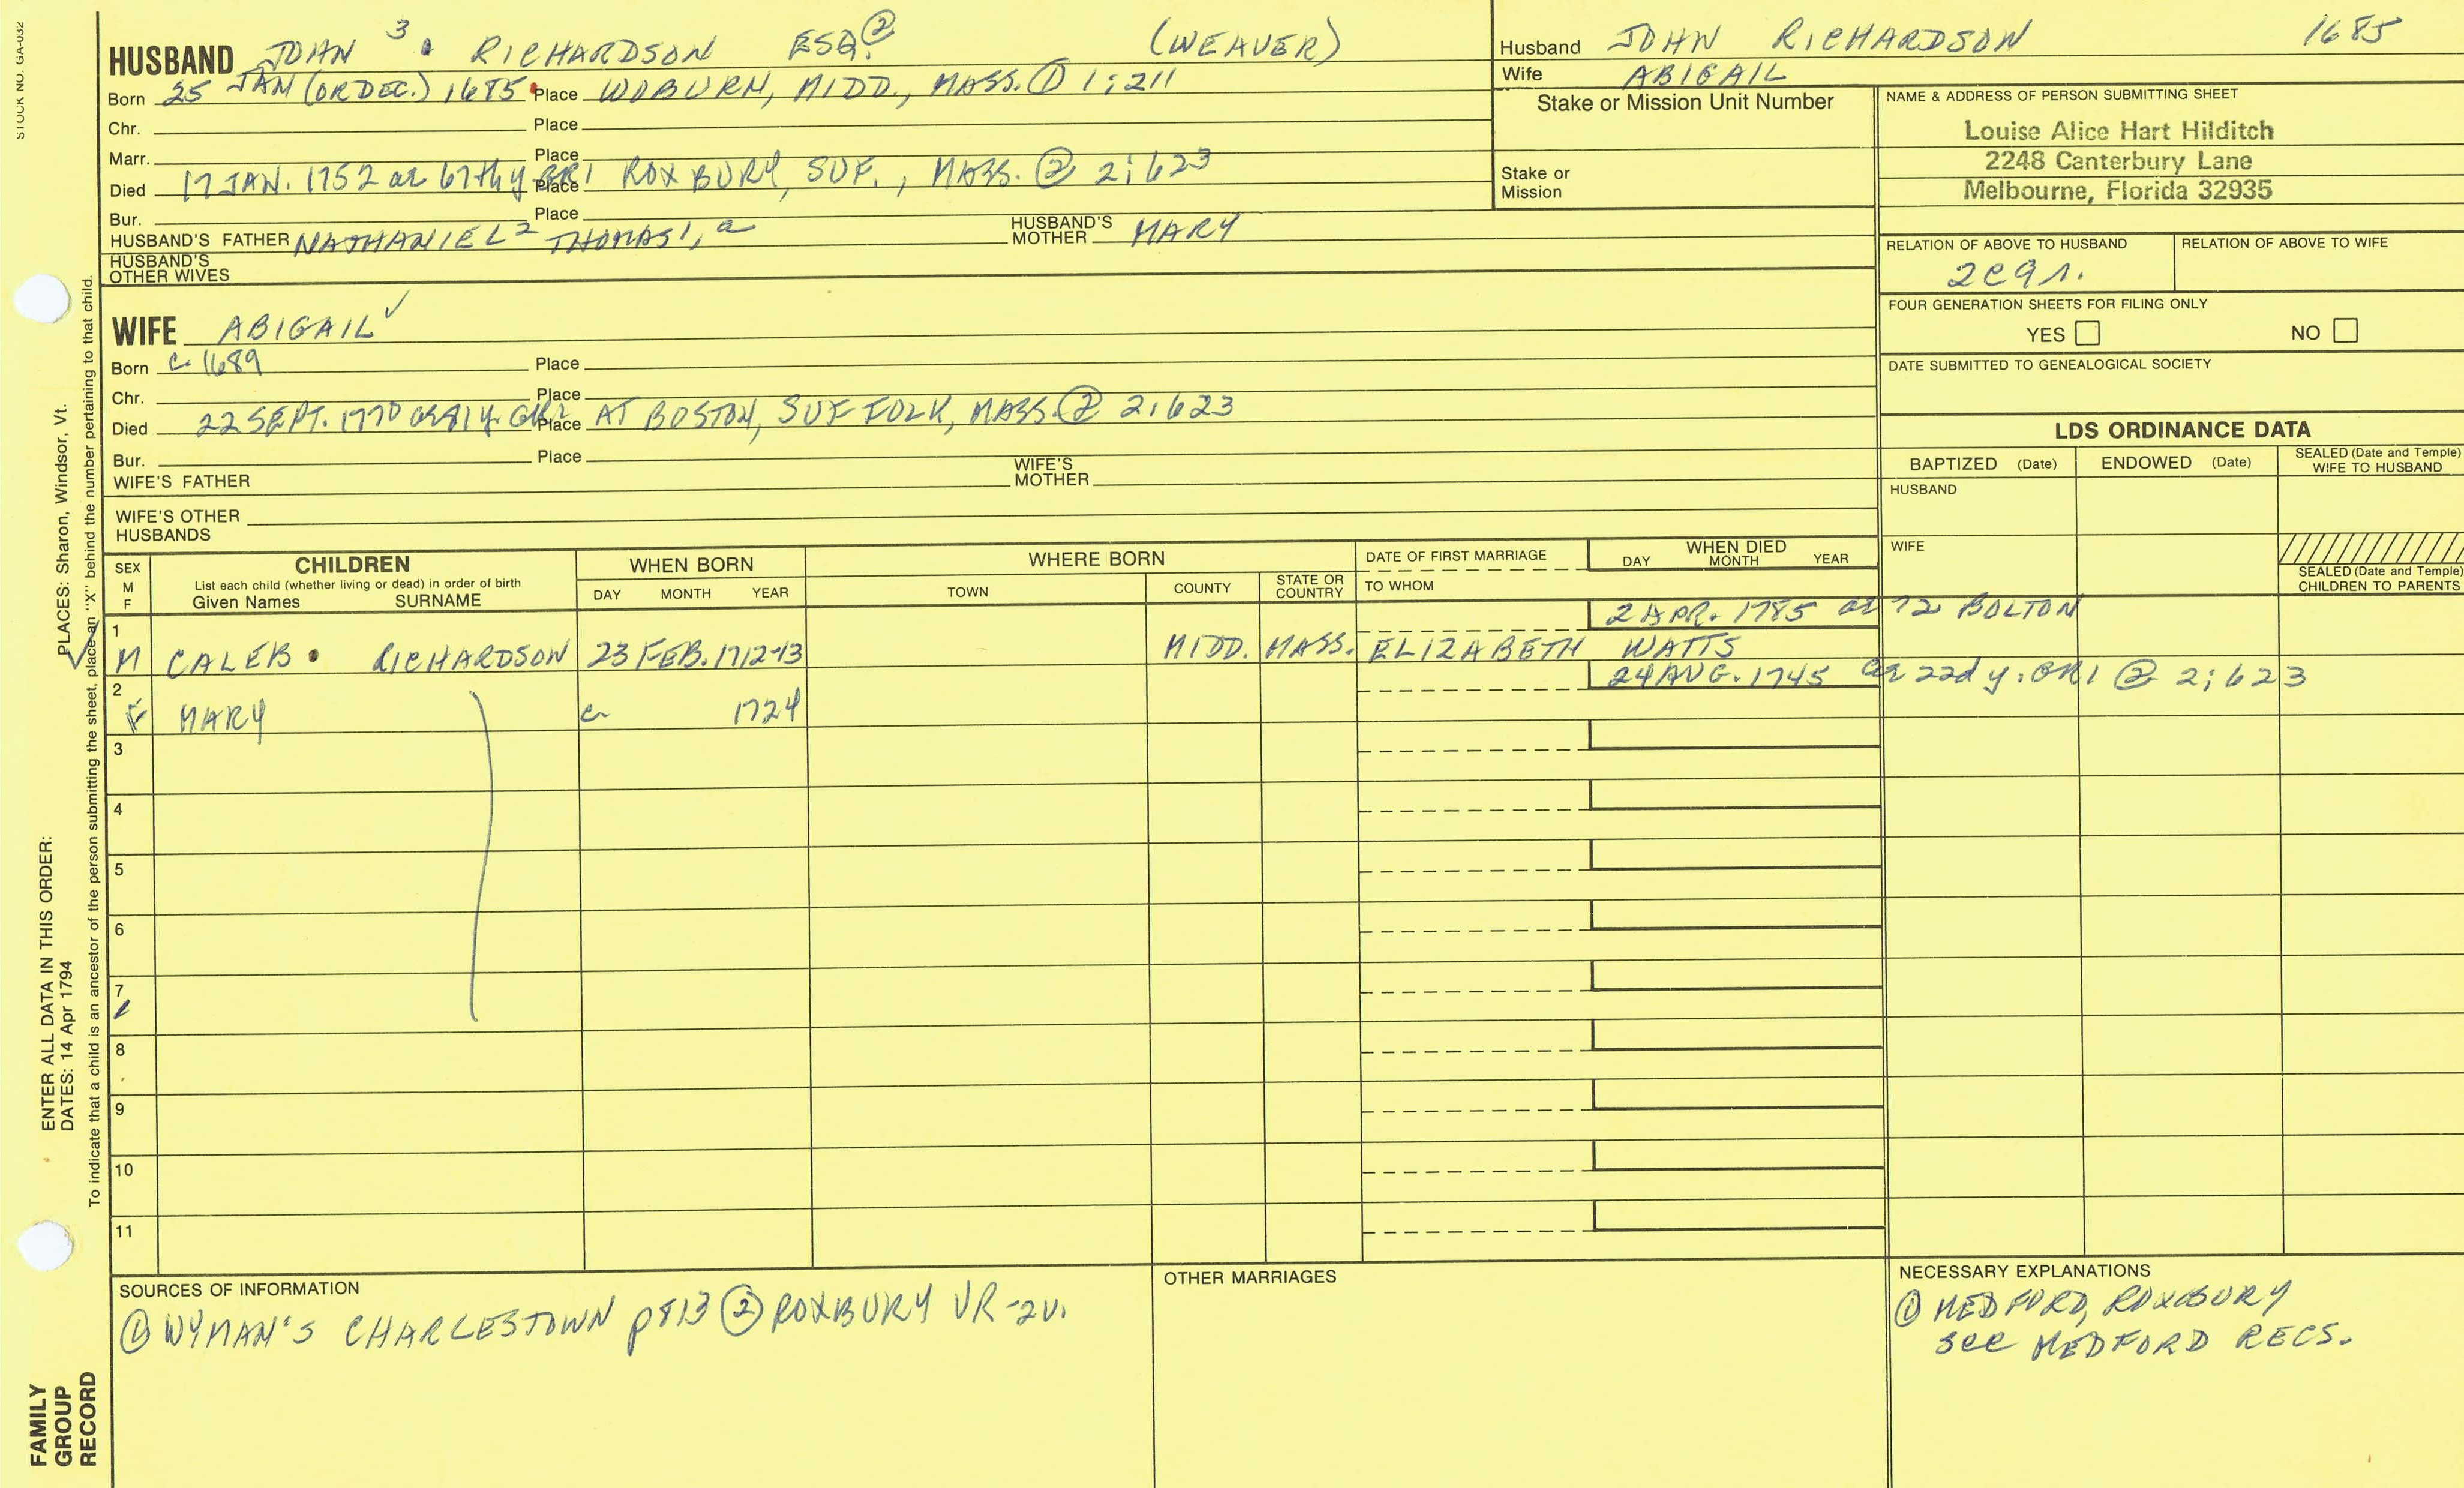 STOCK NO. GA-032
HUSBAND JOHN 3 RICHARDSON ESQ. ② (WEAVER)
Born 25 JAN (OR DEC.) 1685 Place WOBURN, MIDD., MASS. ① 1:211
Chr. Place
Marr. Place
Died 17 JAN. 1752 ae 67th y GR1 Place ROXBURY, SUF., MASS. ② 2:623
Bur. Place
HUSBAND'S FATHER NATHANIEL 2 THOMAS 1, a HUSBAND'S MOTHER MARY
HUSBAND'S OTHER WIVES
Husband JOHN RICHARDSON 1685
Wife ABIGAIL
Stake or Mission Unit Number
Stake or Mission
NAME & ADDRESS OF PERSON SUBMITTING SHEET
Louise Alice Hart Hilditch
2248 Canterbury Lane
Melbourne, Florida 32935
RELATION OF ABOVE TO HUSBAND RELATION OF ABOVE TO WIFE
FOUR GENERATION SHEETS FOR FILING ONLY
YES NO
DATE SUBMITTED TO GENEALOGICAL SOCIETY
WIFE ABIGAIL ✓
Born c. 1689 Place
Chr. Place
Died 22 SEPT. 1770 ae 81 y. GR1 Place AT BOSTON, SUFFOLK, MASS. ② 2:623
Bur. Place
WIFE'S FATHER WIFE'S MOTHER
WIFE'S OTHER HUSBANDS
LDS ORDINANCE DATA
BAPTIZED (Date) ENDOWED (Date) SEALED (Date and Temple) WIFE TO HUSBAND
HUSBAND
WIFE
SEALED (Date and Temple) CHILDREN TO PARENTS
SEX M F
CHILDREN
List each child (whether living or dead) in order of birth
Given Names SURNAME
WHEN BORN
DAY MONTH YEAR
WHERE BORN
TOWN COUNTY STATE OR COUNTRY
DATE OF FIRST MARRIAGE
TO WHOM
WHEN DIED
DAY MONTH YEAR
1 2 APR. 1785 ae 72 BOLTON
M CALEB RICHARDSON 23 FEB. 1712-13 MIDD. MASS. ELIZABETH WATTS
2 24 AUG. 1745 ae 22d y. GR1 ② 2:623
F MARY c 1724
3
4
5
6
7
8
9
10
11
SOURCES OF INFORMATION
① WYMAN'S CHARLESTOWN p813 ② ROXBURY VR-2v.
OTHER MARRIAGES
NECESSARY EXPLANATIONS
① MEDFORD, ROXBURY
see MEDFORD RECS.
ENTER ALL DATA IN THIS ORDER:
DATES: 14 Apr 1794 PLACES: Sharon, Windsor, Vt.
To indicate that a child is an ancestor of the person submitting the sheet, place an "X" behind the number pertaining to that child.
FAMILY
GROUP
RECORD